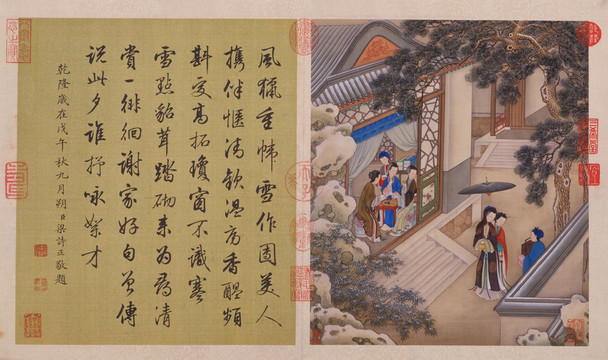 風獵重幃雪作團美人
携伴愜清歡温房香醖頻
斟高拓瓊窗不識寒
雪點貂茸踏砌来為尋清
賞一徘徊謝家好句曾傳
説此夕誰抒詠絮才
乾隆歲在戊午秋九月朔日梁詩正敬題